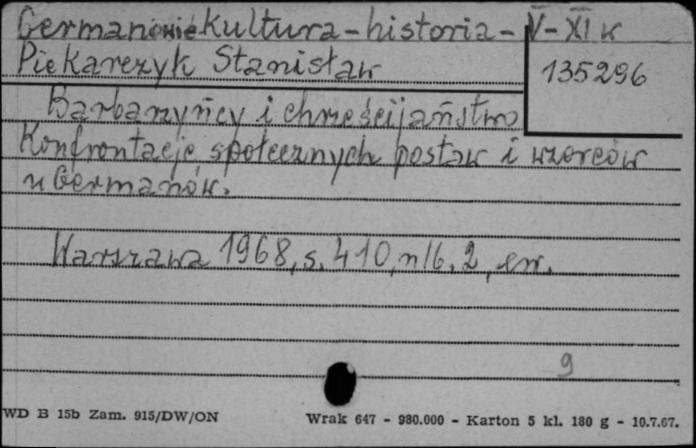 Germanowie kultura - historia - V - XI w
Piekarczyk Stanisław
135296
Barbarzyńcy i chrześcijaństwo
Konfrontacje społecznych postaw i wzorców
u Germanów.
Warszawa 1968, s. 410, nlb. 2, err.
9
WD B 15b Zam. 915/DW/ON
Wrak 647 - 930.000 - Karton 5 kl. 180 g - 10.7.67.